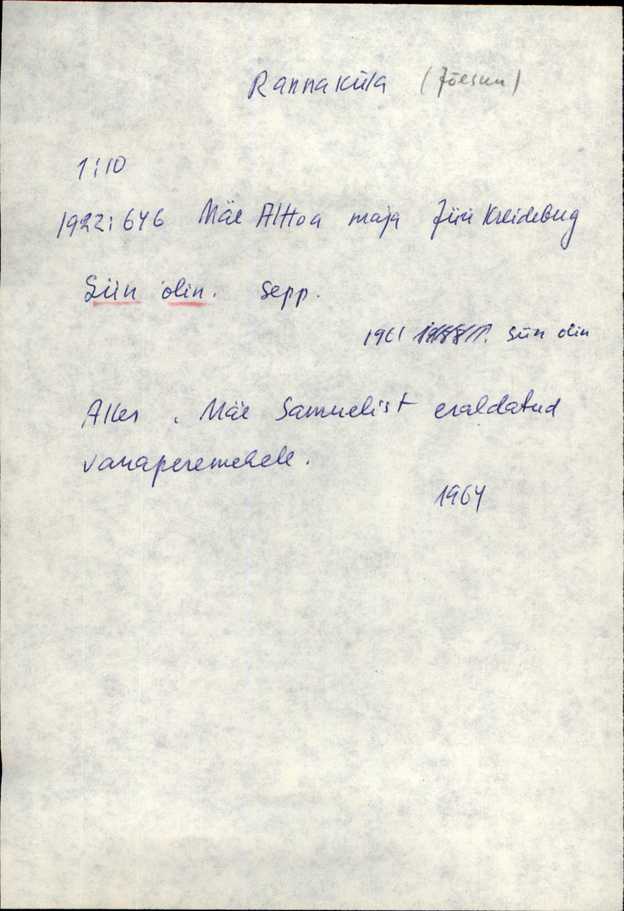 Rannaküla (Jõesuu)
1:10
1922:646 Mäe Attoa maja Jüri Kreideberg
Siin olin. Sepp.
1961 Siin olin
Alles. Mäe Samuelist eraldatud
vanaperemehele.
1964